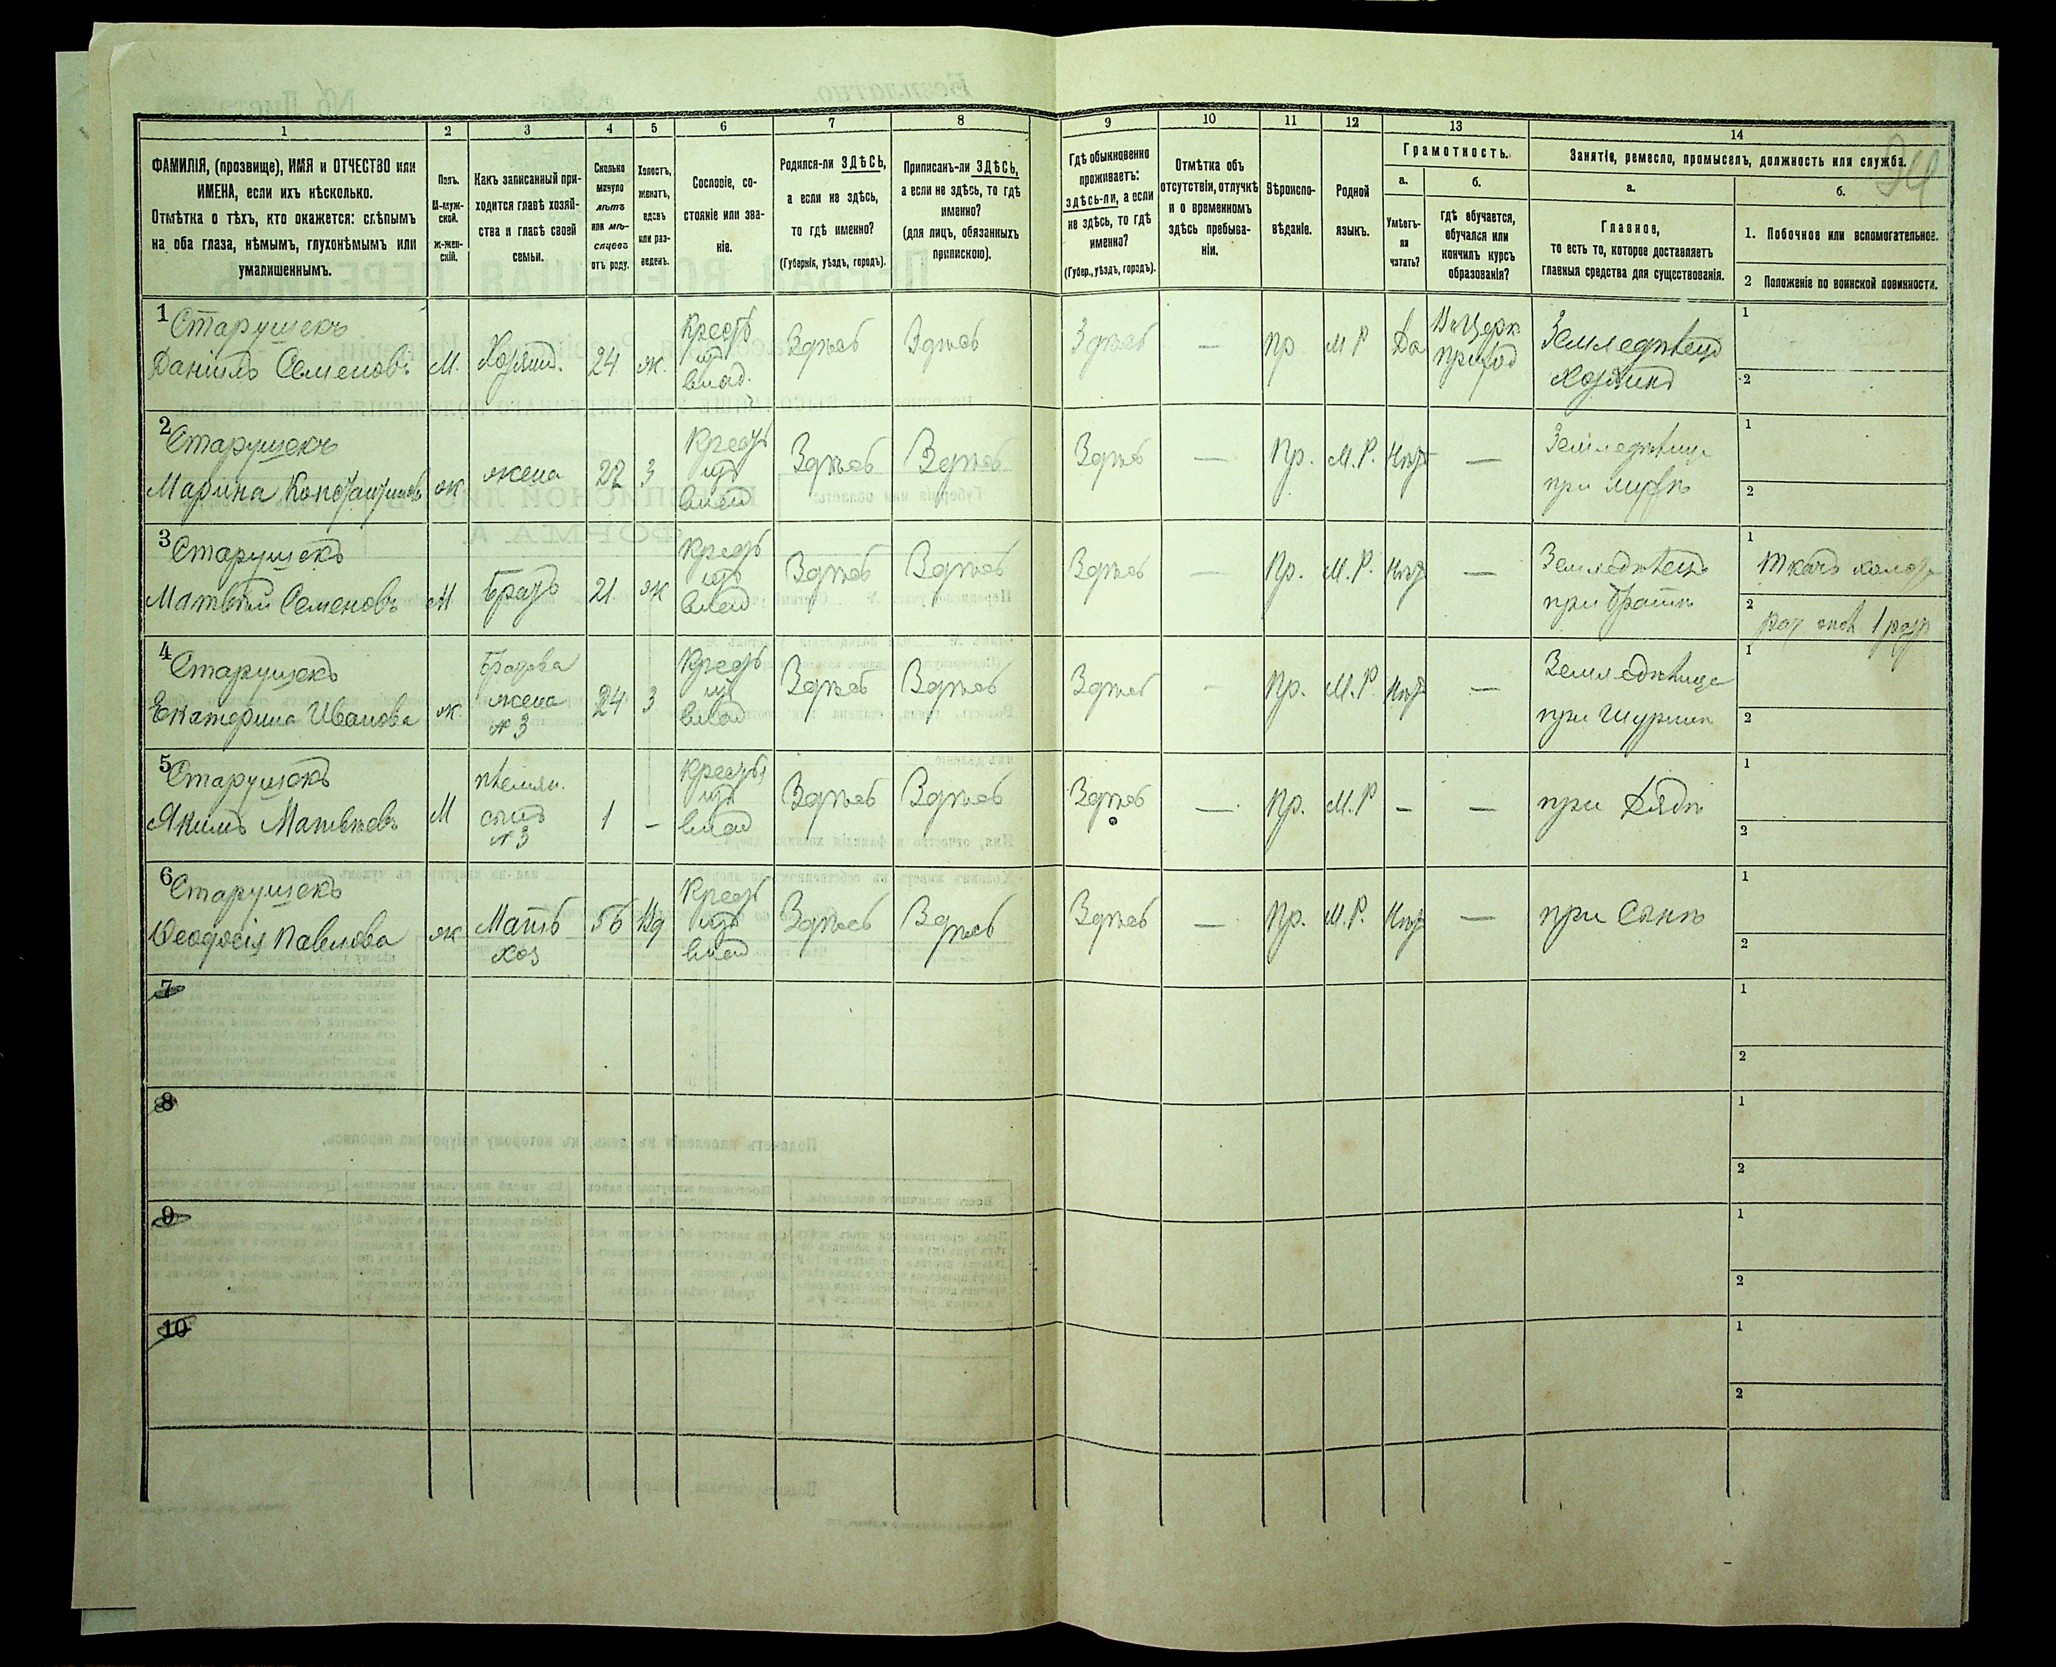 1 2 3 4 5 6 7 8 9 10 11 12 13 14
ФАМИЛІЯ, (прозвище), ИМЯ и ОТЧЕСТВО или
ИМЕНА, если ихъ нѣсколько.
Отмѣтка о тѣхъ, кто окажется: слѣпымъ
на оба глаза, нѣмымъ, глухонѣмымъ или
умалишеннымъ.
Полъ.
М-муж-
ской.
Ж-жен-
скій.
Какъ записанный при-
ходится главѣ хозяй-
ства и главѣ своей
семьи.
Сколько
минуло
лѣтъ
или мѣ-
сяцевъ
отъ роду.
Холостъ,
женатъ,
вдовъ
или раз-
веденъ.
Сословіе, со-
стояніе или зва-
ніе.
Родился-ли ЗДѢСЬ,
а если не здѣсь,
то гдѣ именно?
(Губернія, уѣздъ, городъ).
Приписанъ-ли ЗДѢСЬ,
а если не здѣсь, то гдѣ
именно?
(для лицъ, обязанныхъ
припискою).
Гдѣ обыкновенно
проживаетъ:
здѣсь-ли, а если
не здѣсь, то гдѣ
именно?
(Губер., уѣздъ, городъ).
Отмѣтка объ
отсутствіи, отлучкѣ
и о временномъ
здѣсь пребыва-
ніи.
Вѣроиспо-
вѣданіе.
Родной
языкъ.
Грамотность.
а.
Умѣетъ-
ли
читать?
б.
гдѣ обучается,
обучался или
кончилъ курсъ
образованія?
Занятіе, ремесло, промыселъ, должность или служба.
а.
Главное,
то есть то, которое доставляетъ
главныя средства для существованія.
б.
1. Побочное или вспомогательное.
2 Положеніе по воинской повинности.
1 Старушекъ
Даніилъ Семеновъ М. Хозяинъ. 24 ж. Крест. изъ влад. Здѣсь Здѣсь Здѣсь — Пр М Р Да Въ Церк приход Земледѣлецъ хозяинъ 1
2
2 Старушекъ
Марина Константинов ж жена 22 З Крест изъ влад Здѣсь Здѣсь Здѣсь — Пр. М. Р. Нѣт — Земледѣлица при мужѣ 1
2
3 Старушекъ
Матвѣй Семеновъ М Братъ 21 ж Крест изъ влад Здѣсь Здѣсь Здѣсь — Пр. М. Р. Нѣт — Земледѣлецъ при братѣ 1 Ткачъ холста
2 рат опол 1 разр
4 Старушекъ
Екатерина Иванова ж. Братова жена № 3 24 З Крест изъ влад Здѣсь Здѣсь Здѣсь — Пр. М. Р. Нѣт — Земледѣлица при Шуринѣ 1
2
5 Старушекъ
Якимъ Матвѣевъ М племян. сынъ № 3 1 — Крест изъ влад Здѣсь Здѣсь Здѣсь — Пр. М. Р — — при Дядѣ 1
2
6 Старушекъ
Ѳеодосія Павлова ж Мать хоз 56 Вд Крест изъ влад Здѣсь Здѣсь Здѣсь — Пр. М. Р. Нѣт — при Сынѣ 1
2
7 1
2
8 1
2
9 1
2
10 1
2